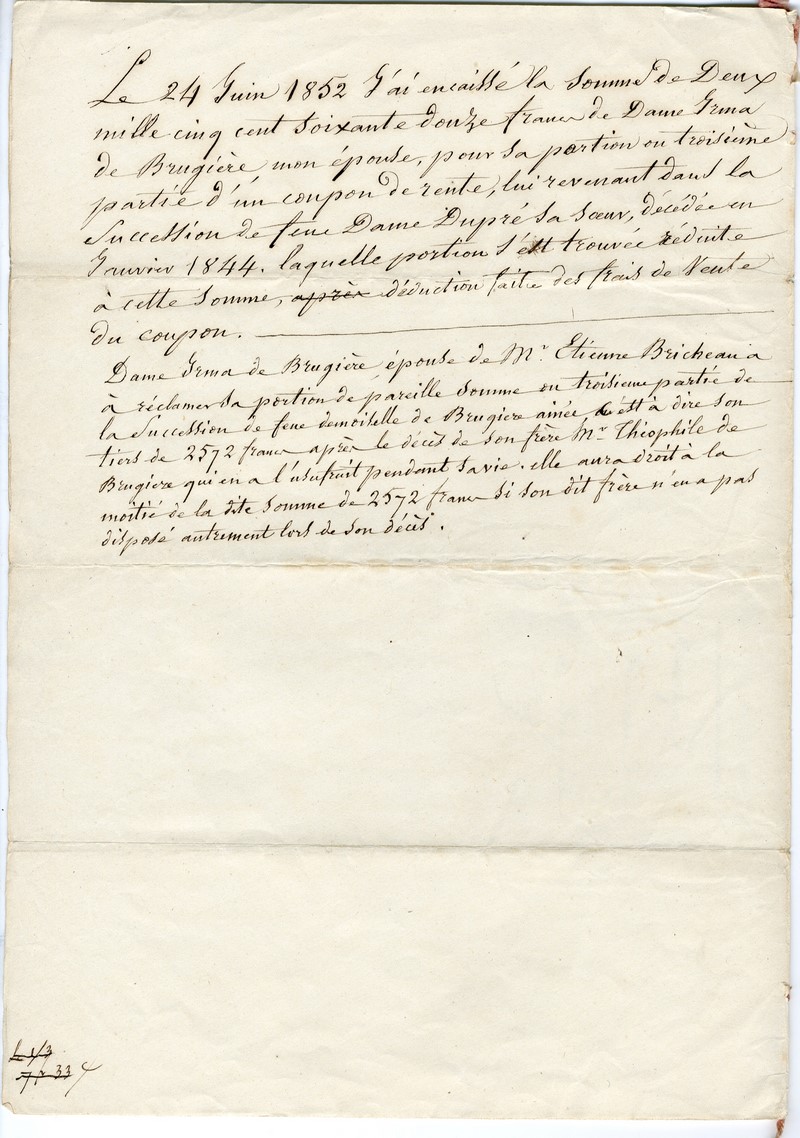 Le 24 Juin 1852 J'ai encaissé la Somme de Deux
mille cinq cent soixante douze francs de Dame Irma
de Brugière, mon épouse, pour sa portion ou troisième
partie d'un coupon de rente, lui revenant dans la
succession de feue Dame Dupré sa sœur, décédée en
Janvier 1844. laquelle portion s'est trouvée réduite
à cette somme, après déduction faite des frais de Vente
du coupon.
Dame Irma de Brugière épouse de Mr Etienne Bricheau a
à réclamer sa portion de pareille somme ou troisieme partie de
la succession de feue demoiselle de Brugiere ainée c'est à dire son
tiers de 2572 francs après le décès de son frère Mr Théophile de
Brugiere qui en a l'usufruit pendant sa vie. elle aura droit à la
moitié de la dite somme de 2572 francs si son dit frère n'en a pas
disposé autrement lors de son décès.